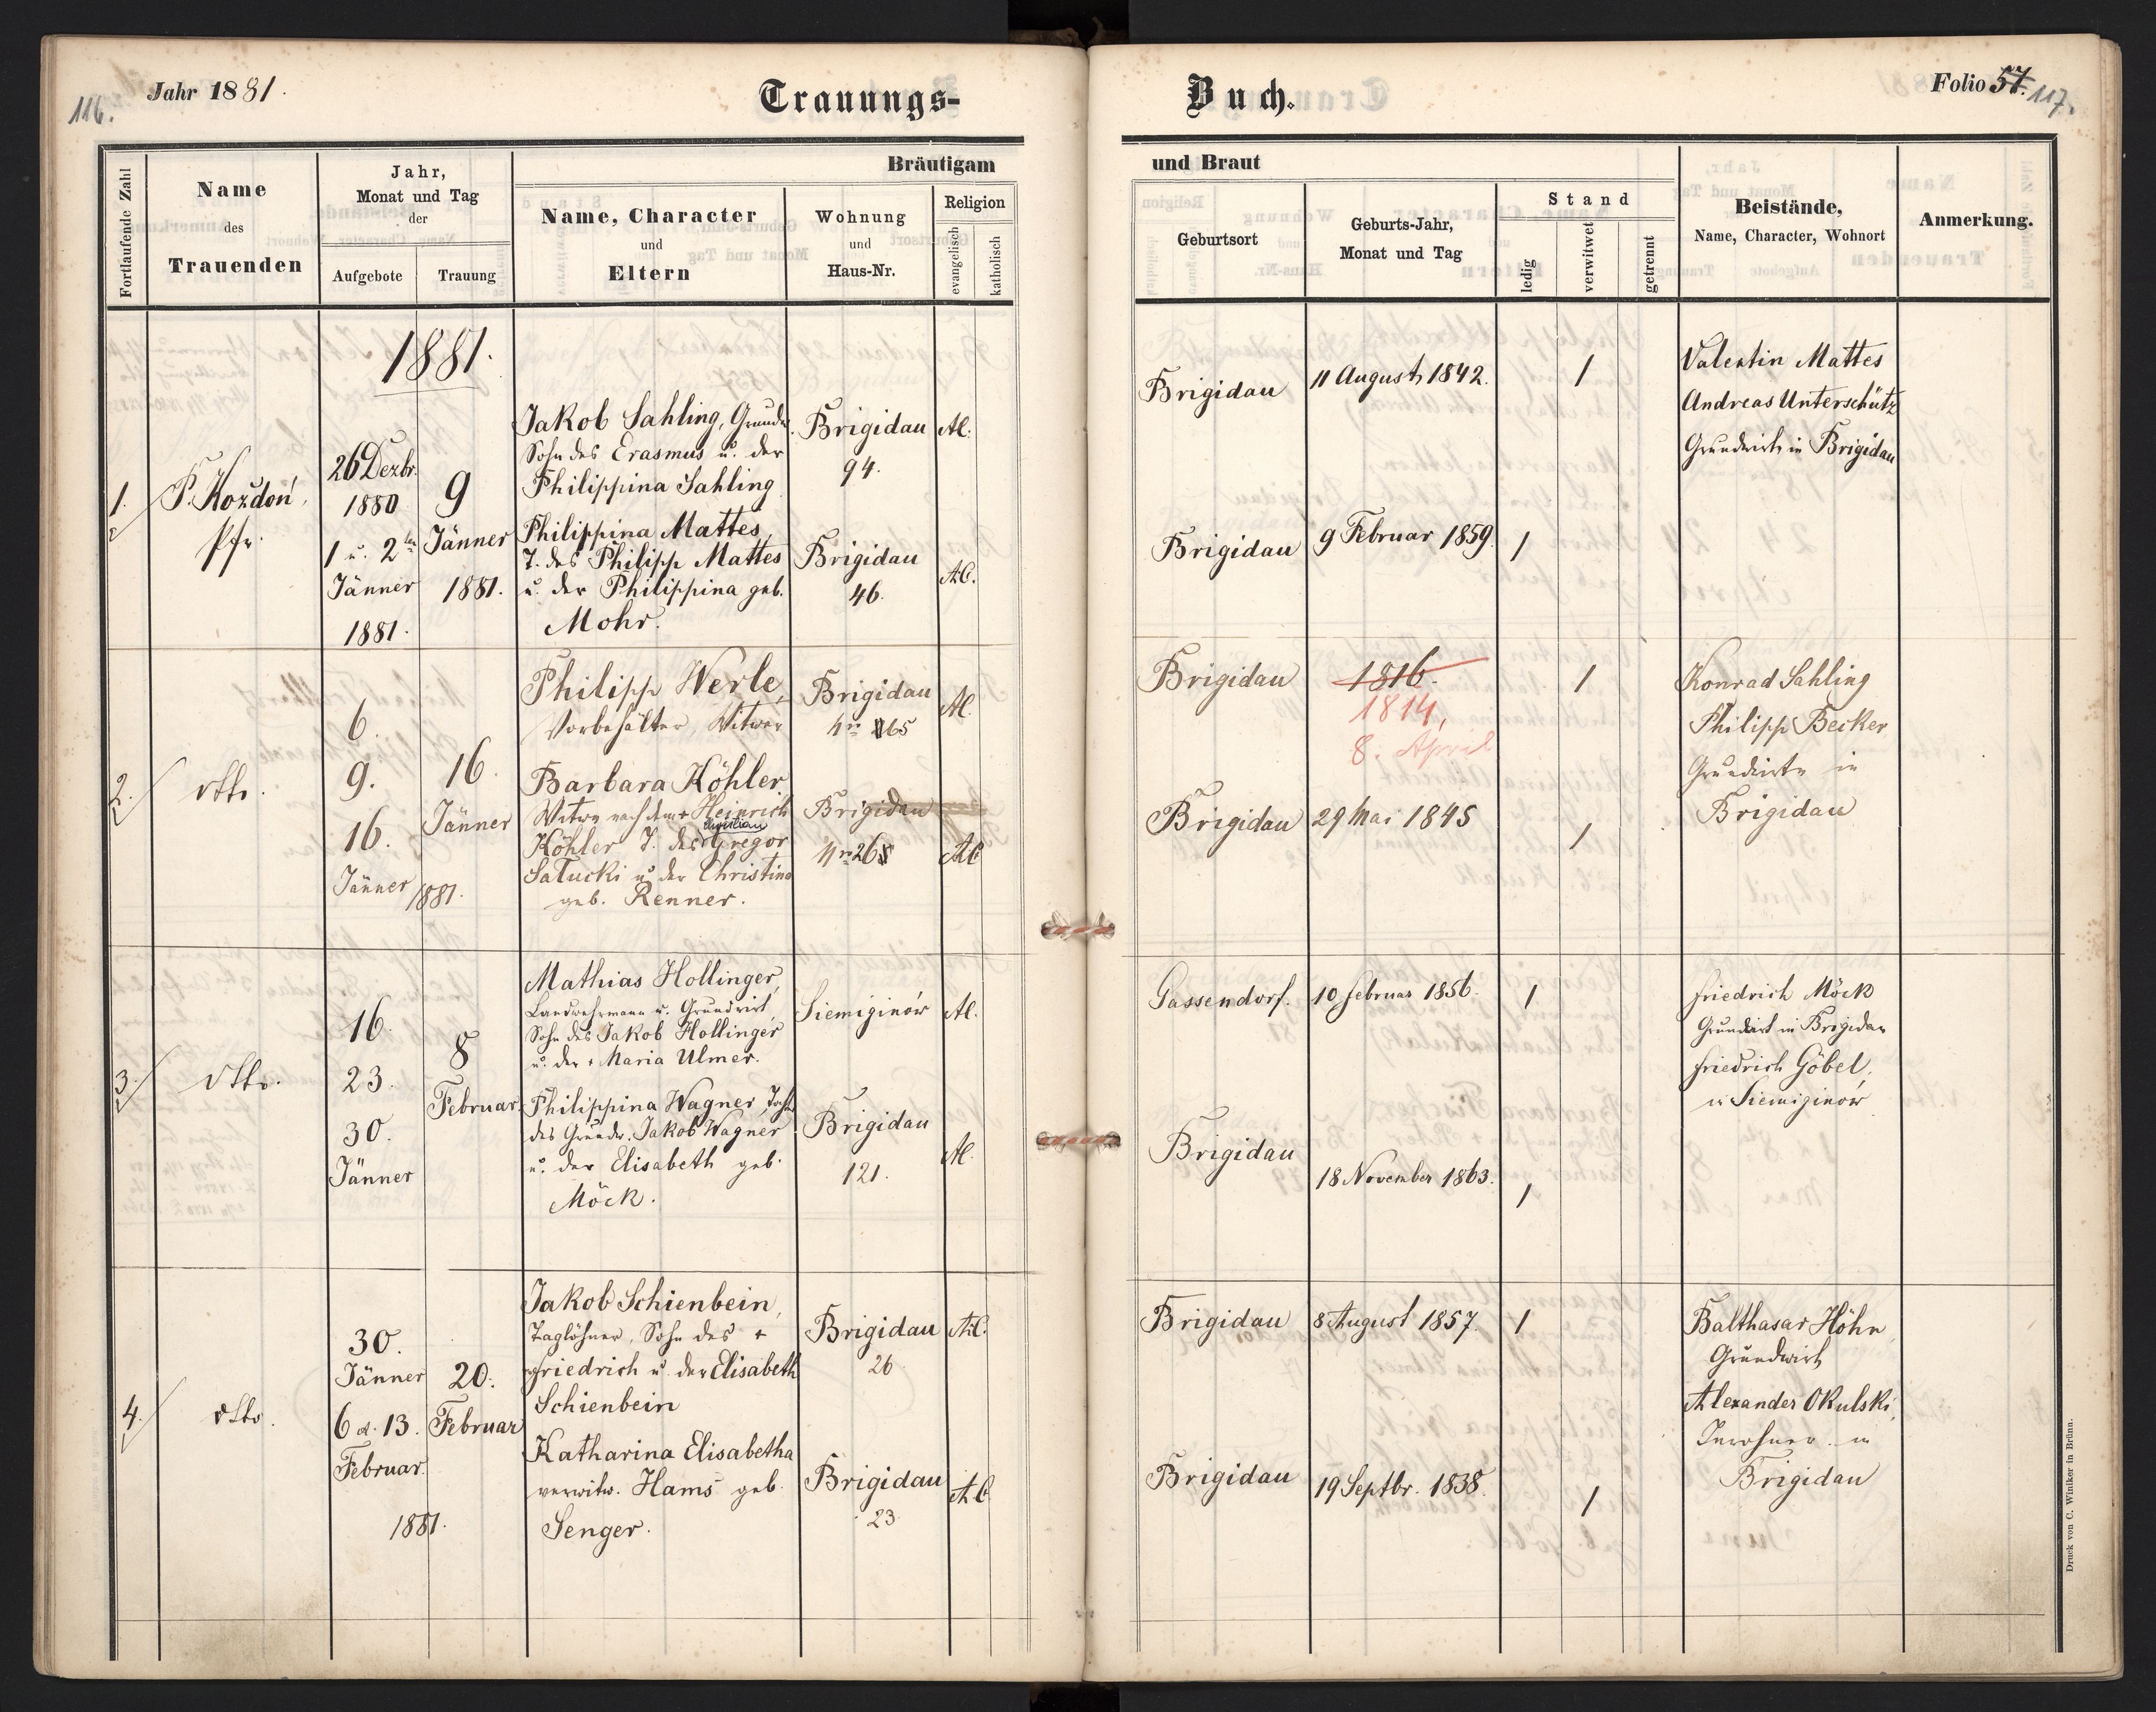 116.
Jahr 1881.
Trauungs-
Buch.
Folio 57. 117.
Fortlaufende Zahl
Name
des
Trauenden
Jahr,
Monat und Tag
der
Aufgebote
Trauung
Bräutigam
Name, Character
und
Eltern
Wohnung
und
Haus-Nr.
Religion
evangelisch
katholisch
und Braut
Geburtsort
Geburts-Jahr,
Monat und Tag
Stand
ledig
verwitwet
getrennt
Beistände,
Name, Character, Wohnort
Anmerkung.
1881.
1.
P. Kozdoń,
Pfr.
26 Dezbr.
1880
1 u. 2ten
Jänner
1881.
9
Jänner
1881.
Jakob Sahling, Grundw.
Sohn des Erasmus u. der
Philippina Sahling
Philippina Mattes,
T. des Philipp Mattes
u. der Philippina geb.
Mohr.
Brigidau
94.
Brigidau
46.
AC.
AC.
Brigidau
11 August 1842.
1
Brigidau
9 Februar 1859.
1
Valentin Mattes
Andreas Unterschütz
Grundwirth in Brigidau
2.
dtto.
6.
9.
16.
Jänner
16.
Jänner
1881.
Philipp Werle,
Vorbehälter, Witwer
Barbara Köhler,
Witwe nach dem + Heinrich
Christian
Köhler T. des Gregor
Satucki u. der Christina
geb. Renner.
Brigidau
Nro 65
Brigidau
Nro 26
AC.
AC
Brigidau
1816.
1814,
8. April
1
Brigidau
29 Mai 1845
1
Konrad Sahling
Philipp Becker
Grundwirte in
Brigidau
3.
dtto.
16.
23.
30.
Jänner
8
Februar
Mathias Hollinger,
Landwehrmann u. Grundwirt,
Sohn des Jakob Hollinger
u. der + Maria Ulmer.
Philippina Wagner, Tochter
des Grundw. Jakob Wagner
u. der Elisabeth geb.
Möck.
Siemiginów
Brigidau
121.
AC.
AC.
Gassendorf.
10 Februar 1856.
1
Brigidau
18 November 1863.
1
Friedrich Möck
Grundwirt in Brigidau
Friedrich Göbel,
in Siemiginów
4.
dtto.
30.
Jänner
6 d. 13.
Februar.
1881.
20.
Februar
Jakob Schienbein,
Taglöhner, Sohn des +
Friedrich u. der Elisabeth
Schienbein
Katharina Elisabetha
verwitw. Hams geb.
Senger.
Brigidau
26
Brigidau
23.
AC.
AC
Brigidau
8 August 1857.
1
Brigidau
19 Septbr. 1838.
1
Balthasar Höhn
Grundwirth
Alexander Okulski,
Inwohner in
Brigidau
Druck von C. Winiker in Brünn.